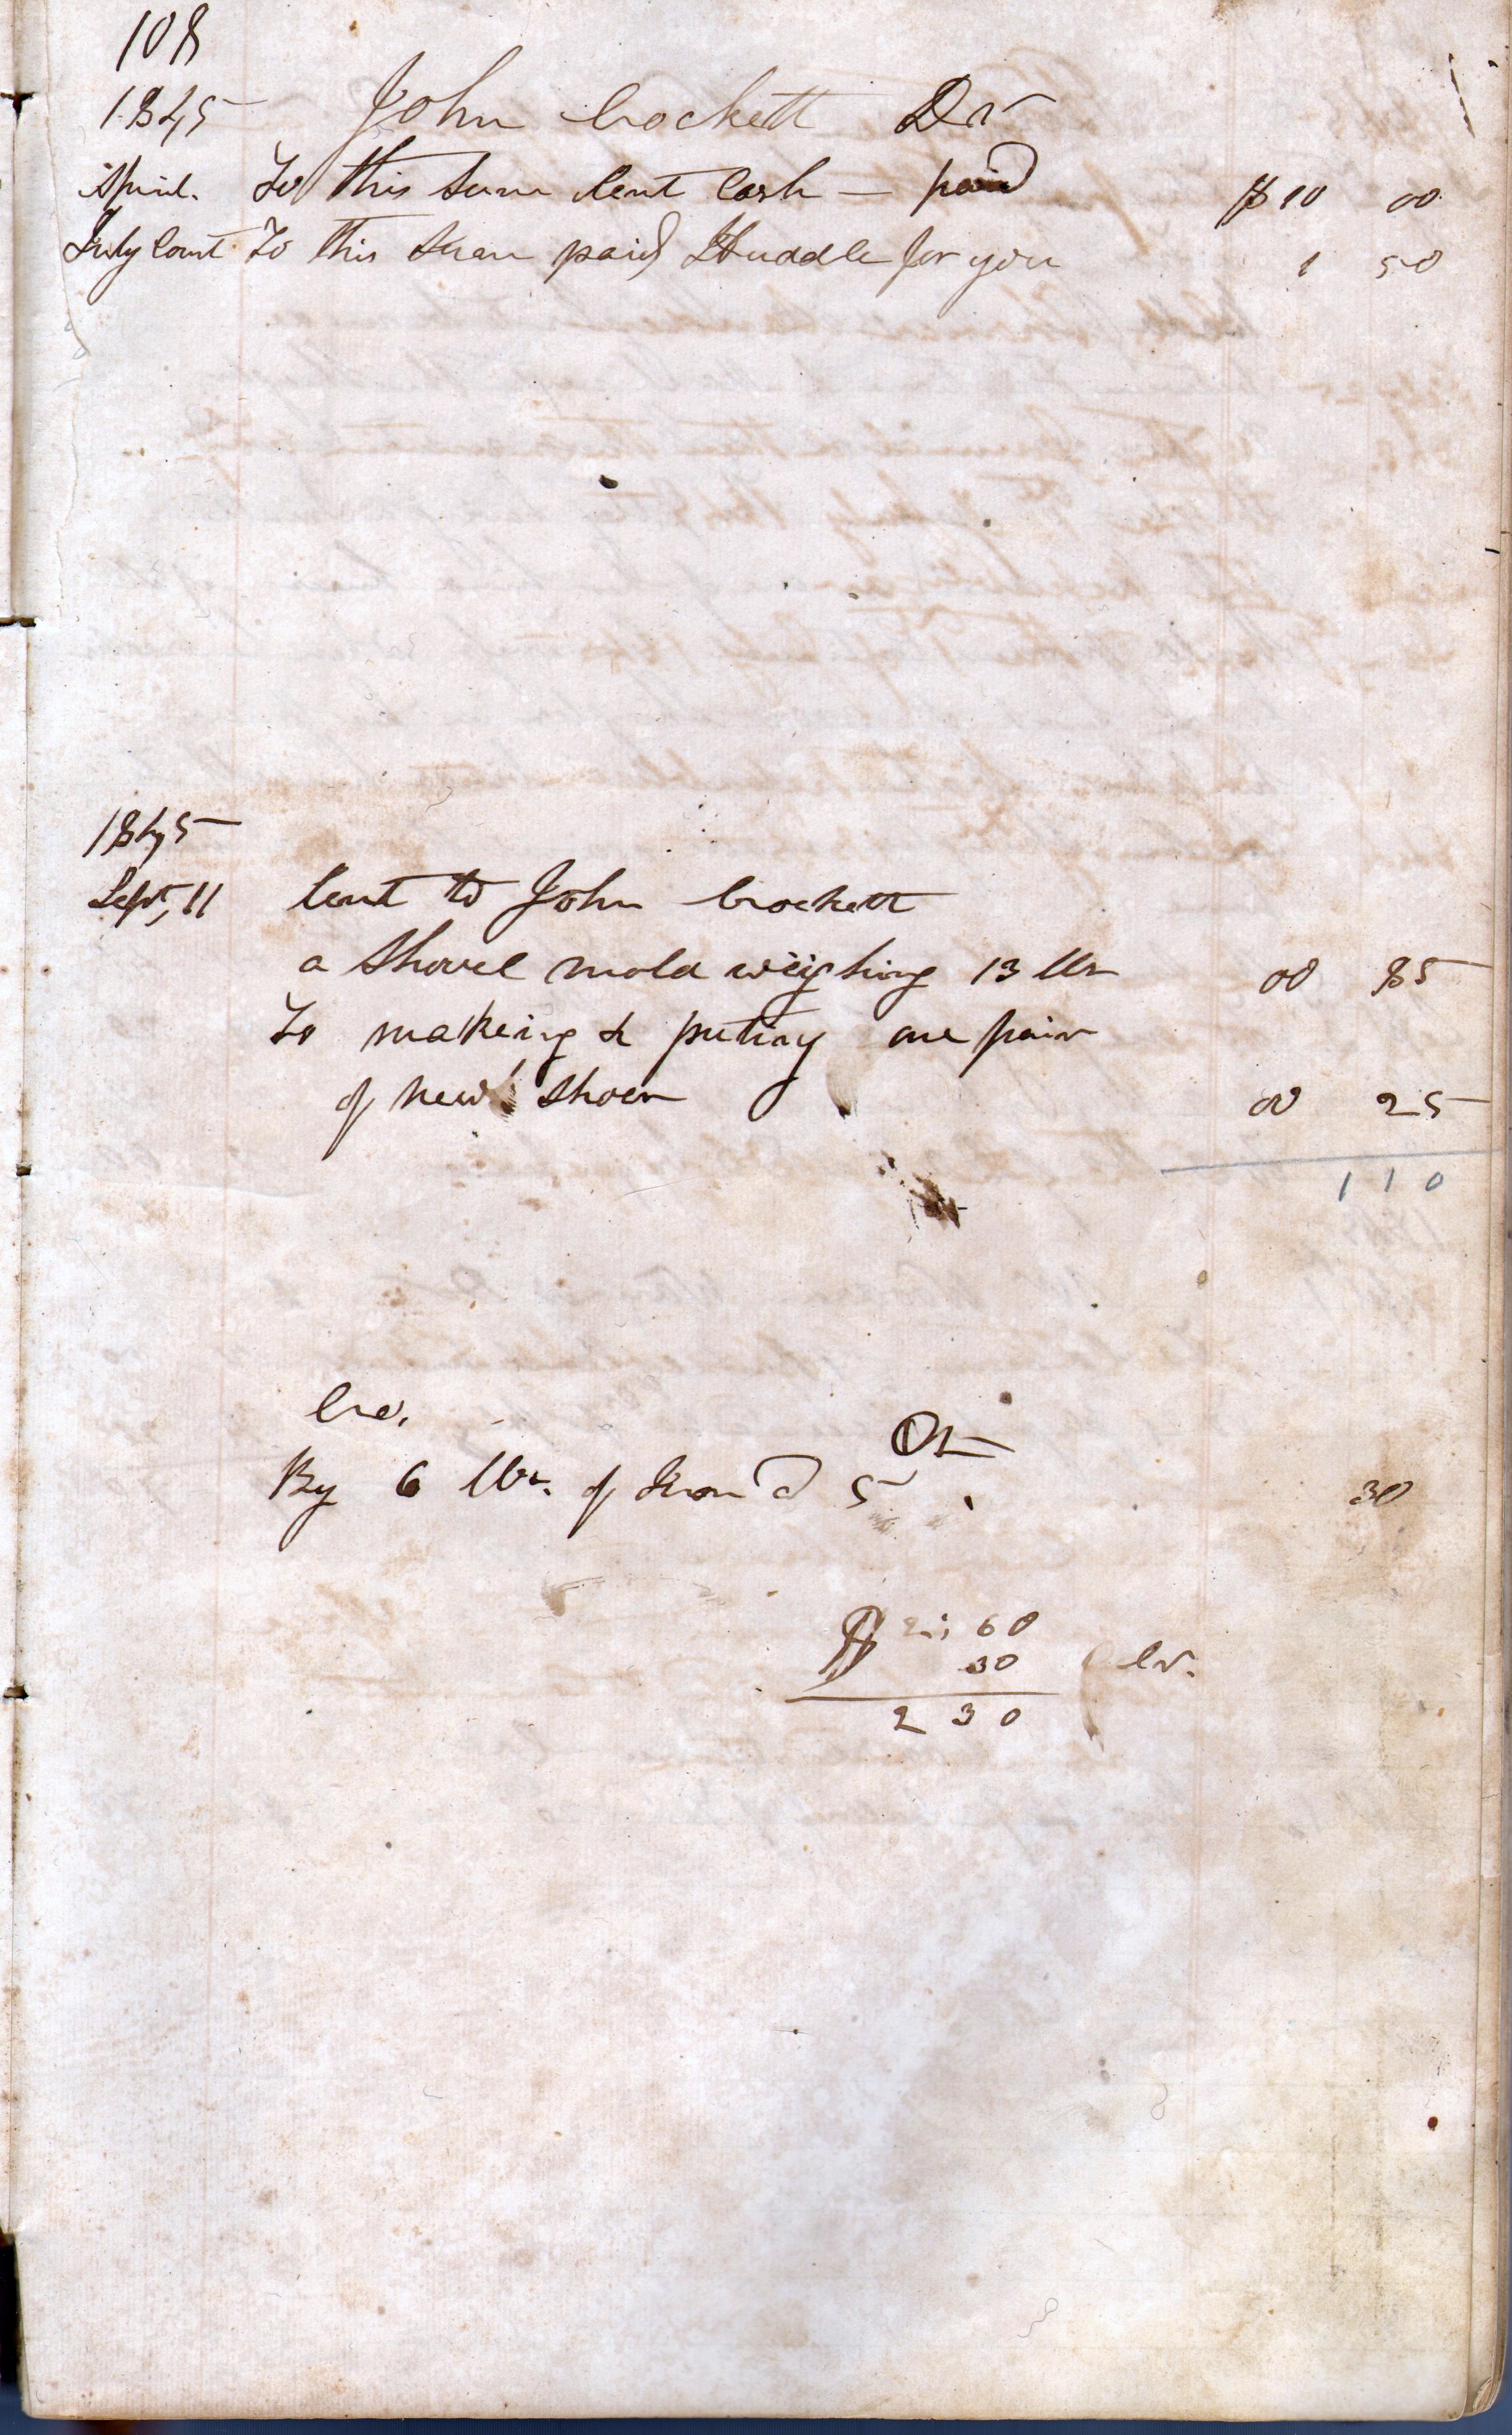 108
1845 John Crockett Dr
April. To this Sum lent Cash — paid $10 00
July Court To this Sum paid Huddle for you 1 50
1845
Sept, 11 lent to John Crockett
a Shovel mold weighing 13 lbs 00 85
To makeing & puting one pair
of new Shoes 00 25
1 10
Cre.
By 6 lbs. of Iron @ 5 30
$ 2 ; 60
30 Cr.
2 30